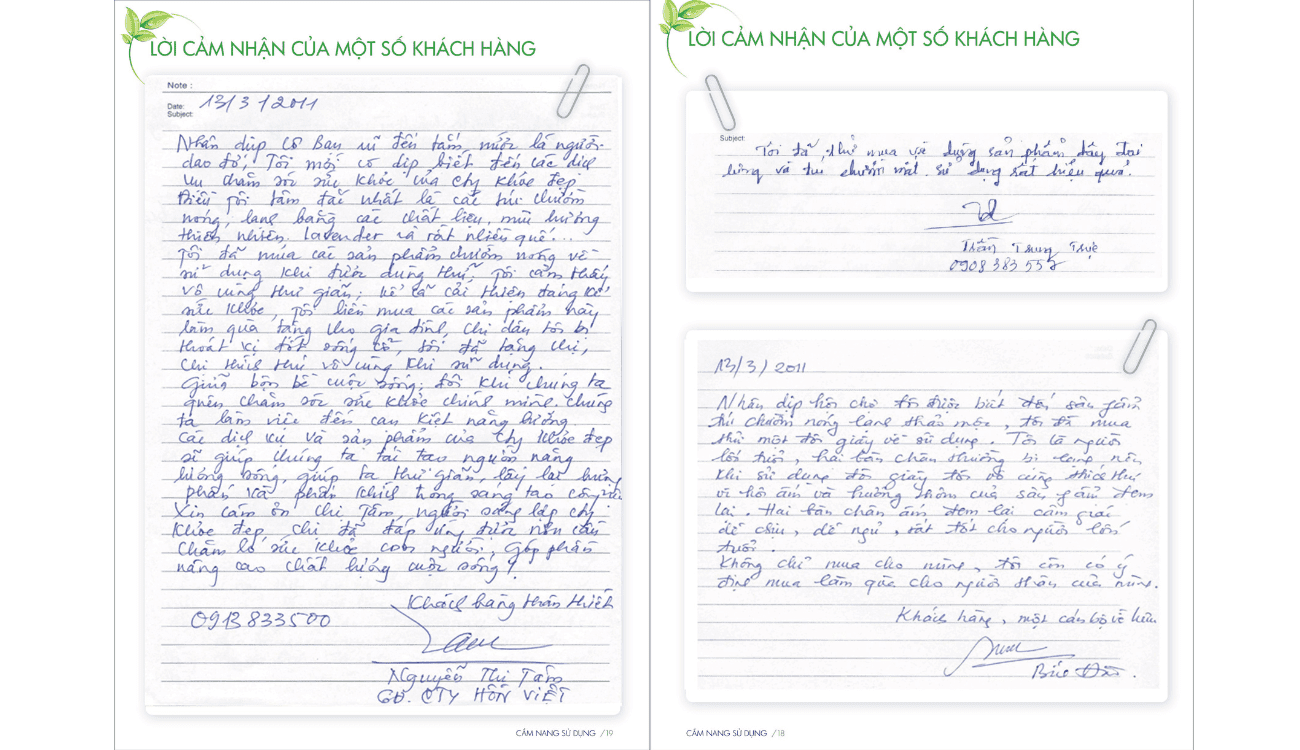 LỜI CẢM NHẬN CỦA MỘT SỐ KHÁCH HÀNG
Note :
Date: 13/3/2011
Subject:
Nhân dịp cô bạn đến tấm, mước là người
dao đỏ, Tôi mới có dịp biết đến các dịch
vụ chăm sóc sức khỏe của Cty Khỏe đẹp
Điều tôi tâm đắc nhất là các túi chườm
nóng, lạnh bằng các chất liệu, mùi hương
thiên nhiên. lavender và rất nhiều quế...
Tôi đã mua các sản phẩm chườm nóng về
sử dụng khi được dùng thử, Tôi cảm thấy
vô cùng thư giãn; kể cả cải thiện đáng kể
sức khỏe, Tôi liền mua các sản phẩm này
làm quà tặng cho gia đình, chị dâu tôi bị
thoát vị đốt sống cổ, tôi đã tặng chị,
chị thích thú vô cùng khi sử dụng.
Giữa bộn bề cuộc sống; đôi khi chúng ta
quên chăm sóc sức khỏe chính mình. chúng
ta làm việc đến cạn kiệt năng lượng.
Các dịch vụ và sản phẩm của Cty Khỏe đẹp
sẽ giúp chúng ta tái tạo nguồn năng
lượng sống, giúp ta thư giãn, lấy lại hưng
phấn và phấn khích trong sáng tạo công việc
Xin cám ơn chị Tâm, người sáng lập cty
Khỏe đẹp, chị đã đáp ứng được nhu cầu
chăm lo sức khỏe con người, góp phần
nâng cao chất lượng cuộc sống!
Khách hàng thân thiết
0913 833500
Nguyễn Thị Tâm
GĐ. CTY HỒN VIỆT
CẨM NANG SỬ DỤNG /19
LỜI CẢM NHẬN CỦA MỘT SỐ KHÁCH HÀNG
Subject:
Tôi đã thử mua về dụng sản phẩm dây đai
lưng và túi chườm mắt. sử dụng rất hiệu quả.
Trần Trung Trực
0908 383 557
13/3/2011
Nhân dịp hội chợ tôi được biết đến sản phẩm
túi chườm nóng lạnh thảo mộc, tôi đã mua
thử một đôi giày về sử dụng. Tôi là người
lớn tuổi, hai bàn chân thường bị lạnh nên
khi sử dụng đôi giày tôi vô cùng thích thú
vì hơi ấm và hương thơm của sản phẩm đem
lại. Hai bàn chân ấm đem lại cảm giác
dễ chịu, dễ ngủ, rất tốt cho người lớn
tuổi.
Không chỉ mua cho mình, tôi còn có ý
định mua làm quà cho người thân của mình.
Khách hàng, một cán bộ về hưu
CẨM NANG SỬ DỤNG /18